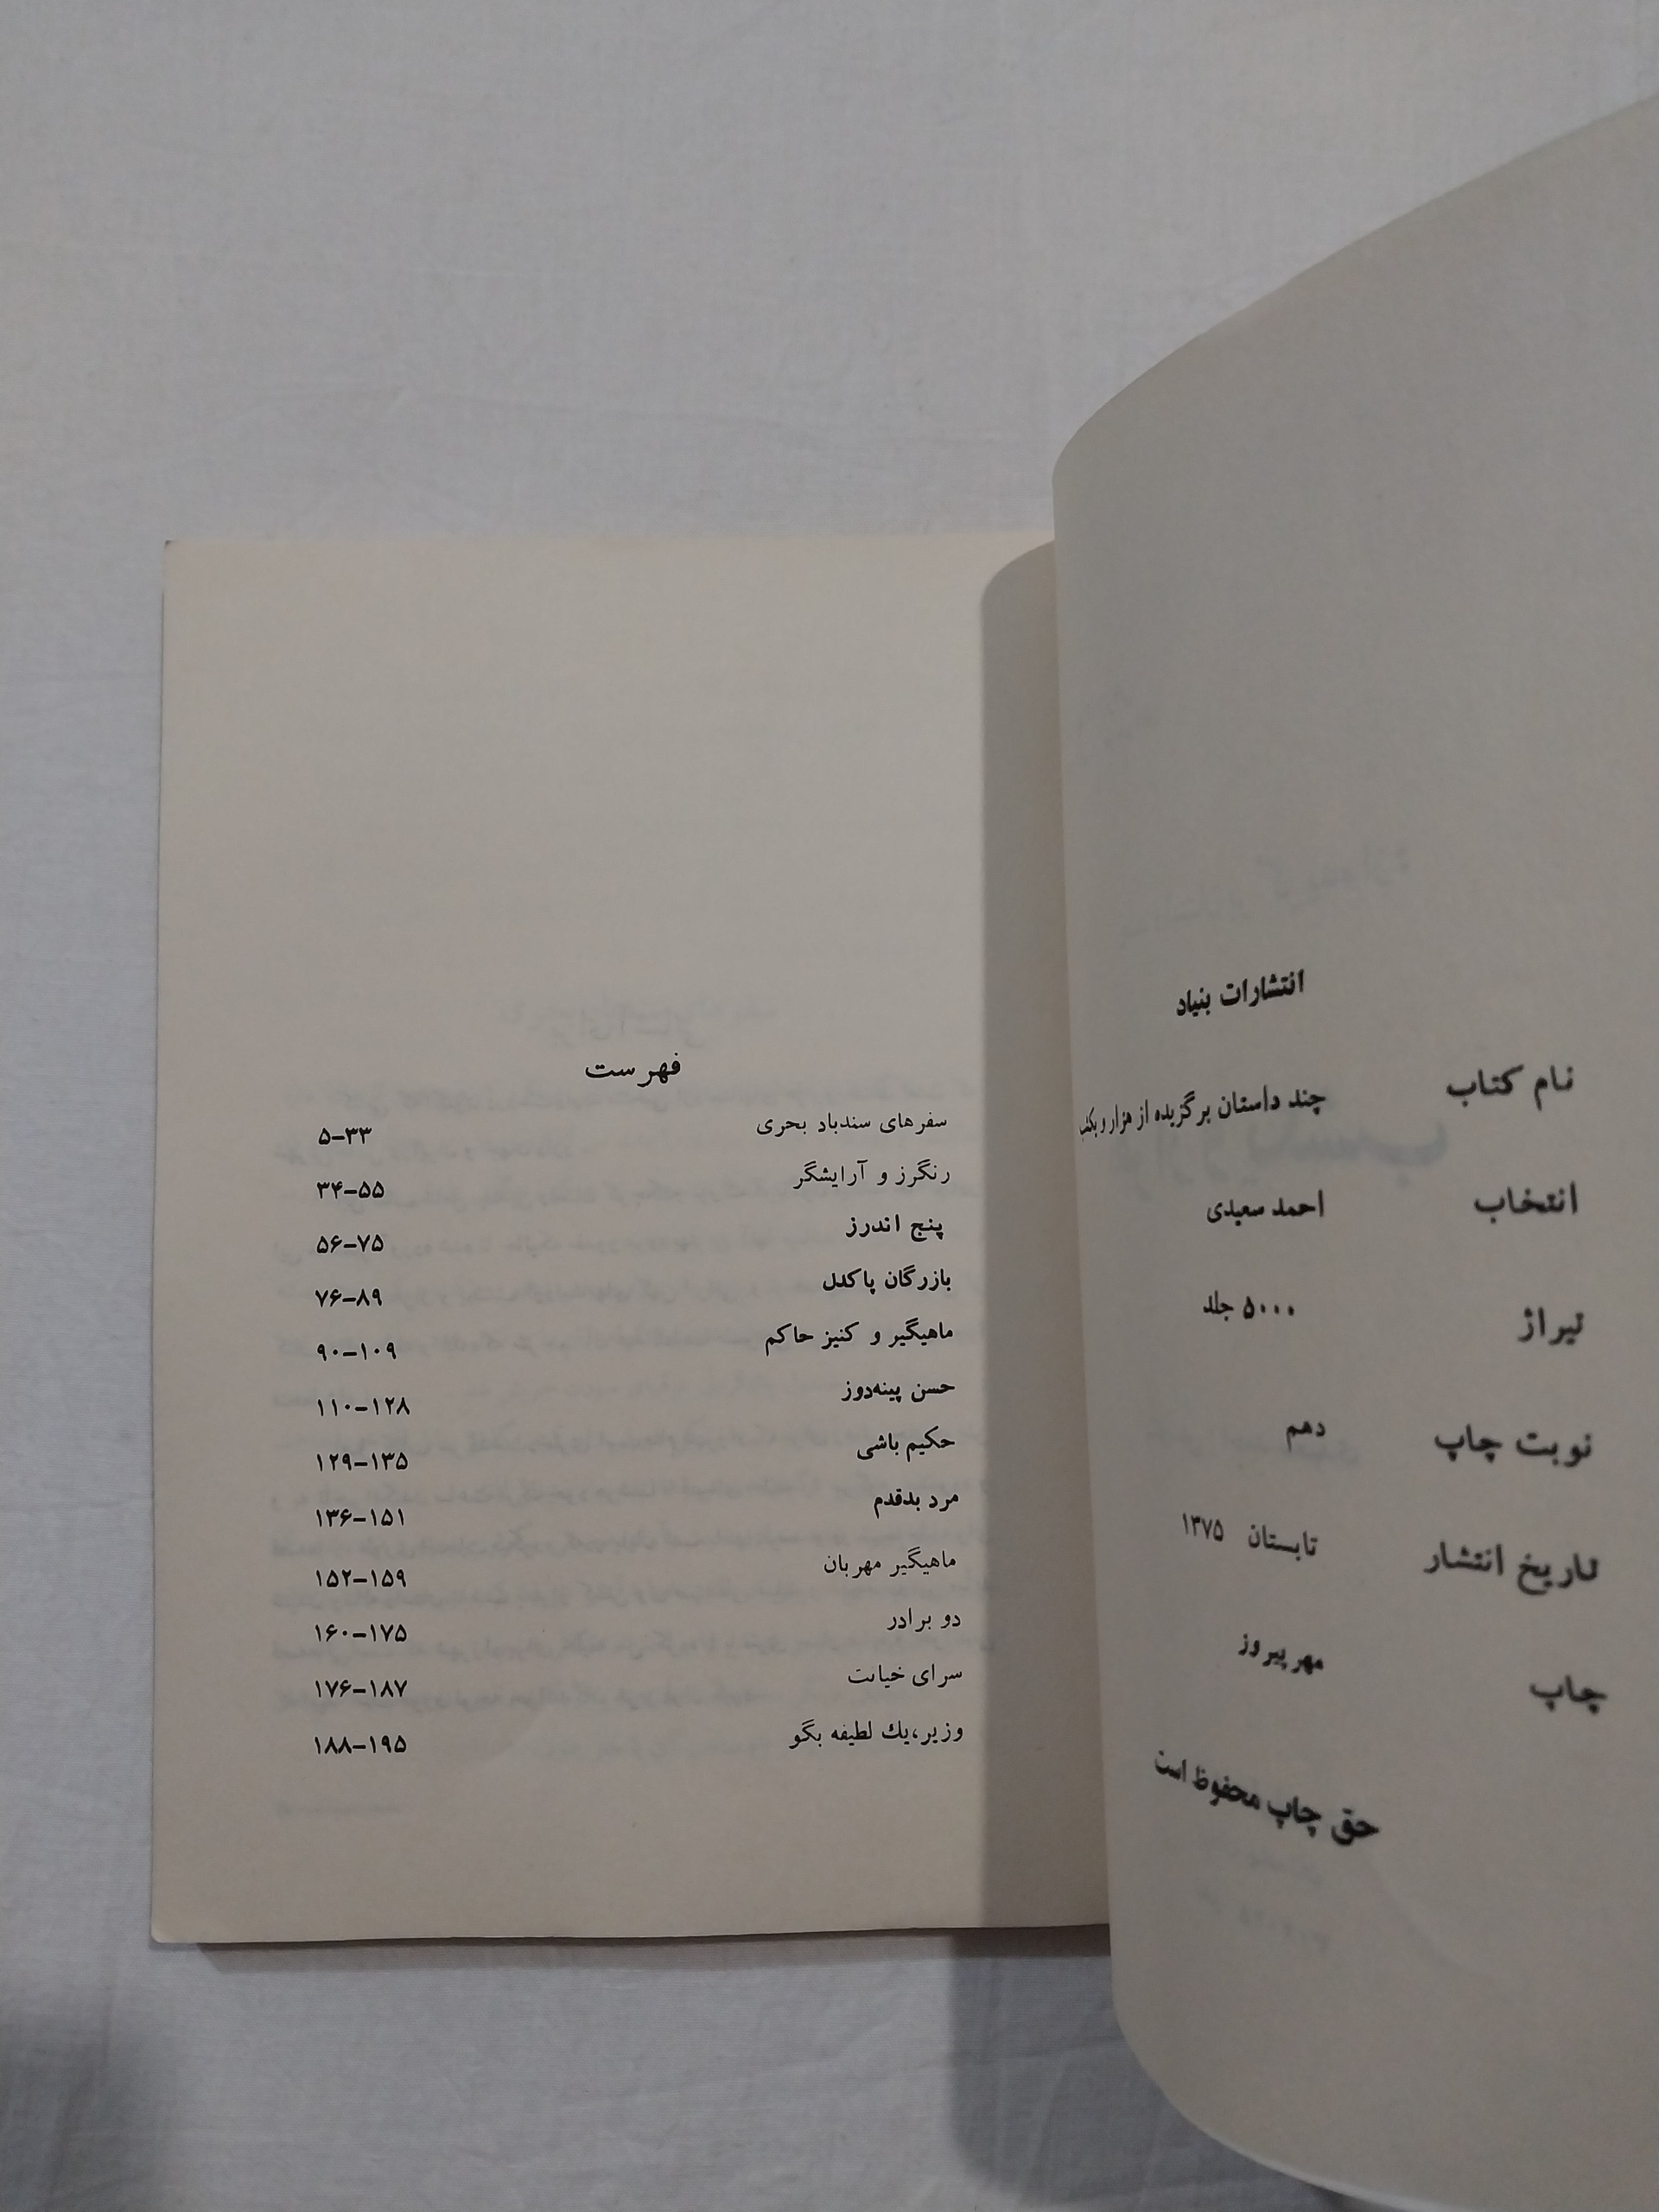 انتشارات بنیاد
نام کتاب چند داستان برگزیده از هزار و یکشب
انتخاب احمد سعیدی
تیراژ ۵۰۰۰ جلد
نوبت چاپ دهم
تاریخ انتشار تابستان ۱۳۷۵
چاپ مهر پیروز
حق چاپ محفوظ است
فهرست
سفرهای سندباد بحری ۵–۳۳
رنگرز و آرایشگر ۳۴–۵۵
پنج اندرز ۵۶–۷۵
بازرگان پاکدل ۷۶–۸۹
ماهیگیر و کنیز حاکم ۹۰–۱۰۹
حسن پینه‌دوز ۱۱۰–۱۲۸
حکیم باشی ۱۲۹–۱۳۵
مرد بدقدم ۱۳۶–۱۵۱
ماهیگیر مهربان ۱۵۲–۱۵۹
دو برادر ۱۶۰–۱۷۵
سرای خیانت ۱۷۶–۱۸۷
وزیر، یك لطیفه بگو ۱۸۸–۱۹۵